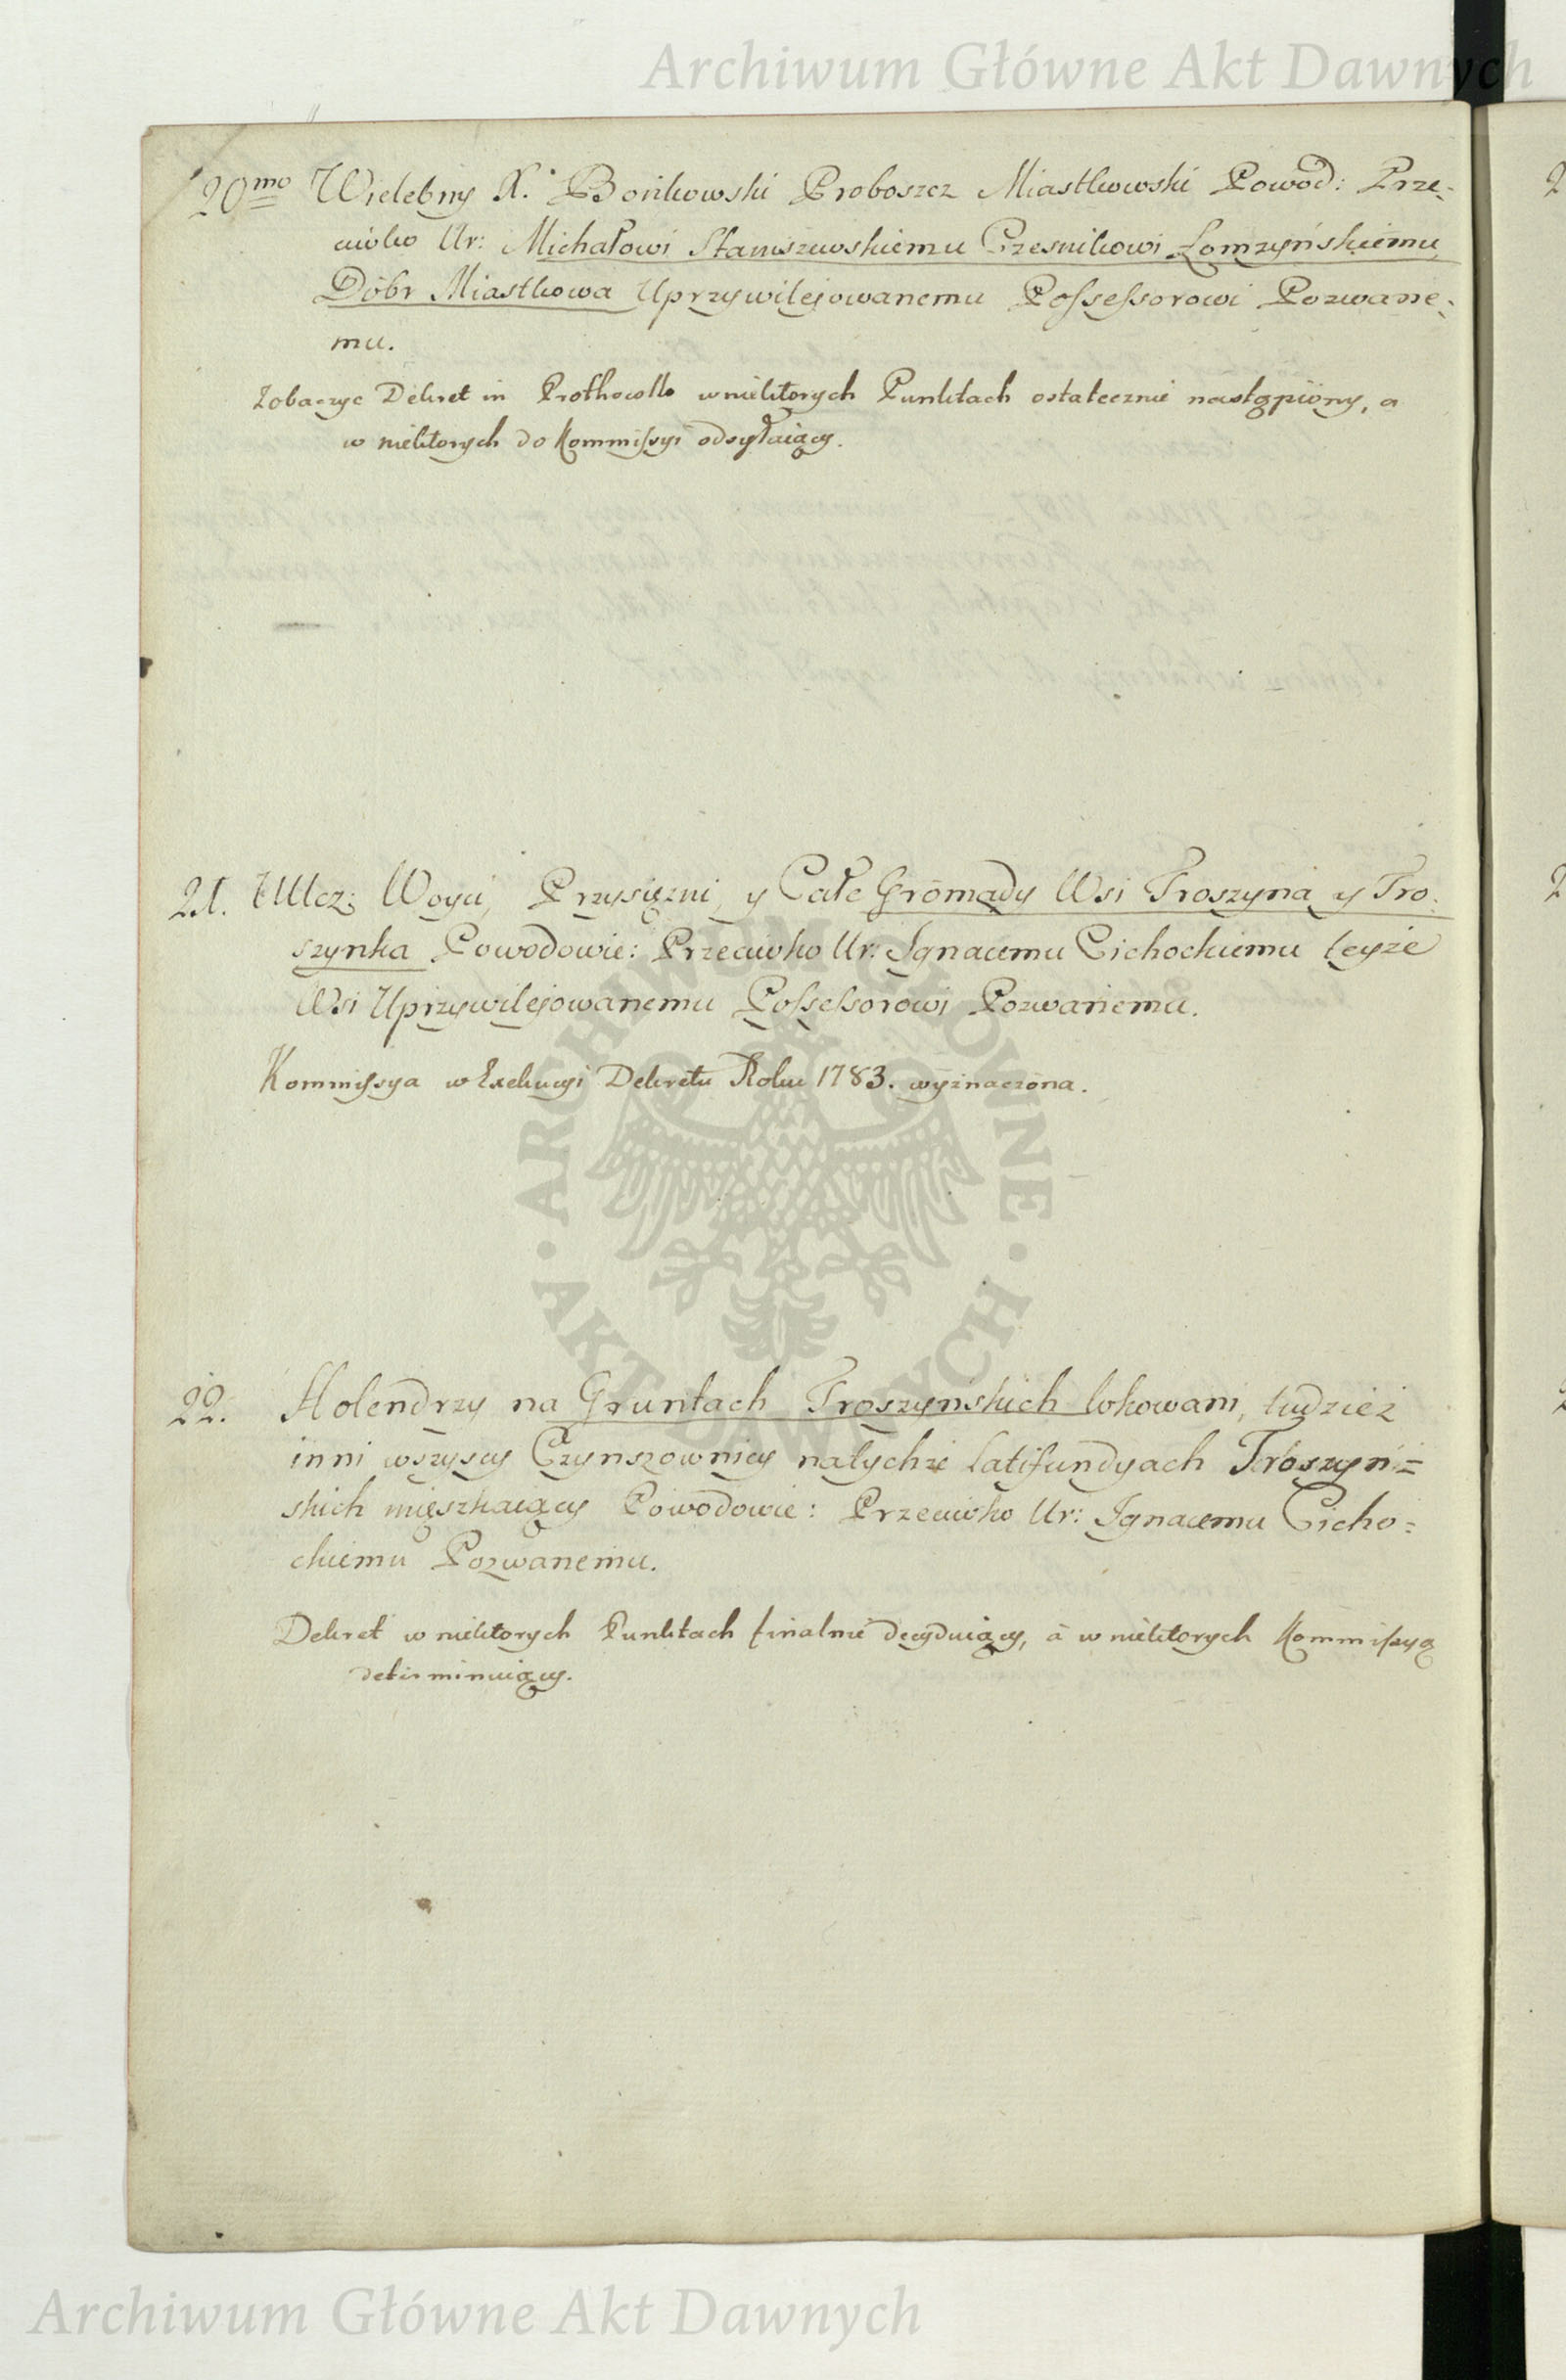 Archiwum Główne Akt Dawnych
20mo Wielebny X. Bońkowski Proboszcz Miastkowski Powod: Prze-
ciwko Ur: Michałowi Staniszewskiemu Czesnikowi Łomzyńskiemu
Dóbr Miastkowa Uprzywilejowanemu Possessorowi Pozwane-
mu.
Zobaczyc Dekret in Prothocollo w niektorych Punktach ostatecznie nastąpiony, a
w niektorych do Kommissyi odsyłaiący.
21. Ucz: Woyci, Przysięzni, y Całe Gromady Wsi Troszyna y Tro-
szynka Powodowie: Przeciwko Ur: Ignacemu Cichockiemu teyże
Wsi Uprzywilejowanemu Possessorowi Pozwanemu.
Kommissya w Exekucyi Dekretu Roku 1783. wyznaczona.
22. Holendrzy na Gruntach Troszyńskich lokowani, tudzież
inni wszyscy Czynszownicy na tychże Latifundyach Troszyń=
skich mięszkaiący Powodowie: Przeciwko Ur: Ignacemu Cicho=
ckiemu Pozwanemu.
Dekret w niektorych Punktach finalnie decyduiący, a w niektorych Kommissyą
determinuiący.
ARCHIWUM GŁÓWNE • AKT DAWNYCH •
Archiwum Główne Akt Dawnych